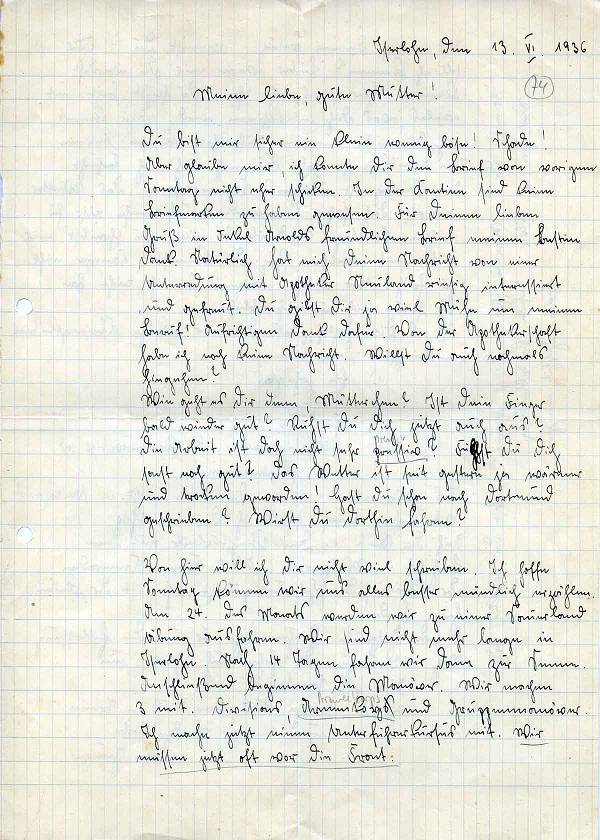 Iserlohn, den 13. VI. 1936
74
Meine liebe, gute Mutter!
Du bist mir sicher ein klein wenig böse! Schade!
Aber glaube mir, ich konnte dir den Brief von vorigem
Sonntag nicht eher schicken. In der Kantine sind keine
Briefmarken zu haben gewesen. Für Deinen lieben
Gruß in Onkel Arnolds freundlichem Brief meinen besten
Dank. Natürlich hat mich Deine Nachricht von einer
Unterredung mit Apotheker Neuland riesig interessiert
und gefreut. Du gibst Dir ja viel Mühe um meinen
Beruf! Aufrichtigen Dank dafür. Von der Apothekerschaft
habe ich noch keine Nachricht. Willst Du auch nochmals
hingehen?
Wie geht es Dir denn, Mütterchen? Ist dein Finger
bald wieder gut? Ruhst Du Dich jetzt auch aus?
Die Arbeit ist doch nicht sehr ? Fühlst Du Dich
sonst noch gut? Das Wetter ist seit gestern ja wärmer
und trocken geworden! Hast Du schon nach Dortmund
geschrieben? Wirst Du dorthin fahren?
Von hier will ich Dir nicht viel schreiben. Ich hoffe
Sonntag können wir uns alles besser mündlich erzählen.
Am 24. des Monats werden wir zu einer Sauerland
übung ausfahren. Wir sind nicht mehr lange in
Iserlohn. Nach 14 Tagen fahren wir dann zur Senne.
Anschließend beginnen die Manöver. Wir machen
3 mit. Divisions, Armeekorps und Gruppenmanöver.
Ich mache jetzt einen Unterführerkursus mit. Wir
müssen jetzt oft vor die Front.